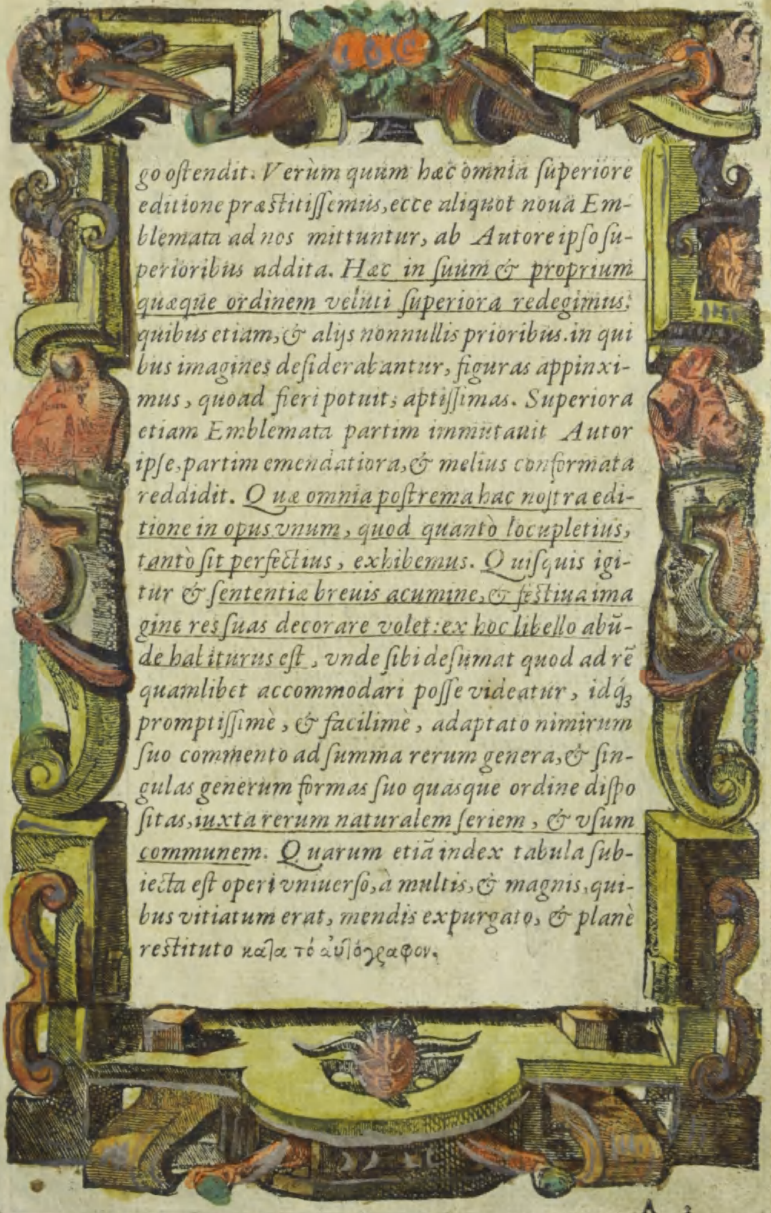 go oſtendit. Verùm quum hæc omnia ſuperiore
editione præſtitiſſemus, ecce aliquot noua Em-
blemata ad nos mittuntur, ab Autore ipſo ſu-
perioribus addita. Hæc in ſuum & proprium
quæque ordinem veluti ſuperiora redegimus:
quibus etiam, & alijs nonnullis prioribus. in qui
bus imagines deſiderabantur, figuras appinxi-
mus, quoad fieri potuit, aptiſſimas. Superiora
etiam Emblemata partim immutauit Autor
ipſe, partim emendatiora, & melius conformata
reddidit. Quæ omnia poſtrema hac noſtra edi-
tione in opus vnum, quod quantò locupletius,
tantò ſit perfectius, exhibemus. Quiſquis igi-
tur & ſententiæ breuis acumine, & feſtiua ima
gine res ſuas decorare volet: ex hoc libello abū-
de habiturus eſt, vnde ſibi deſumat quod ad rē
quamlibet accommodari poſſe videatur, idq́ꝫ
promptiſſimè, & facilimè, adaptato nimirum
ſuo commento ad ſumma rerum genera, & ſin-
gulas generum formas ſuo quaſque ordine diſpo
ſitas, iuxta rerum naturalem ſeriem, & vſum
communem. Quarum etiā index tabula ſub-
iecta eſt operi vniuerſo, à multis, & magnis, qui-
bus vitiatum erat, mendis expurgato, & planè
reſtituto κατὰ τὸ αὐτόγραφον.
A 3